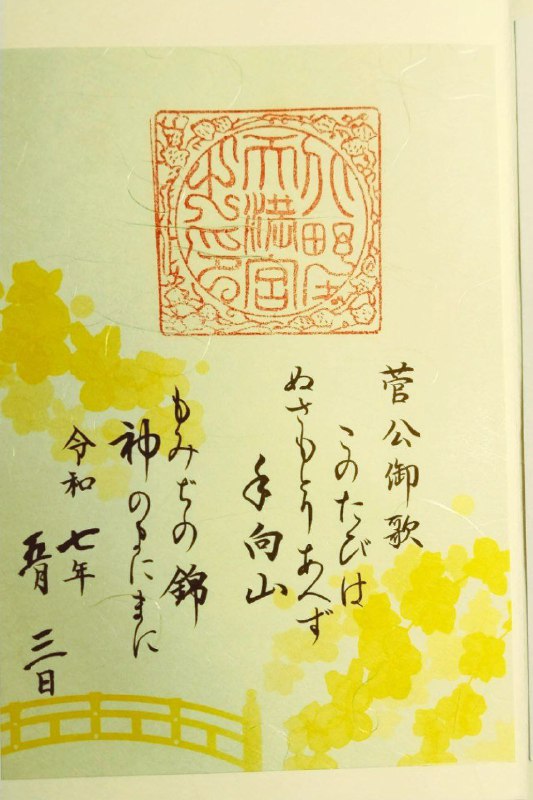 天満宮
菅公御歌
このたびは
ぬさもとりあへず
手向山
もみぢの錦
神のまにまに
令和七年
五月三日